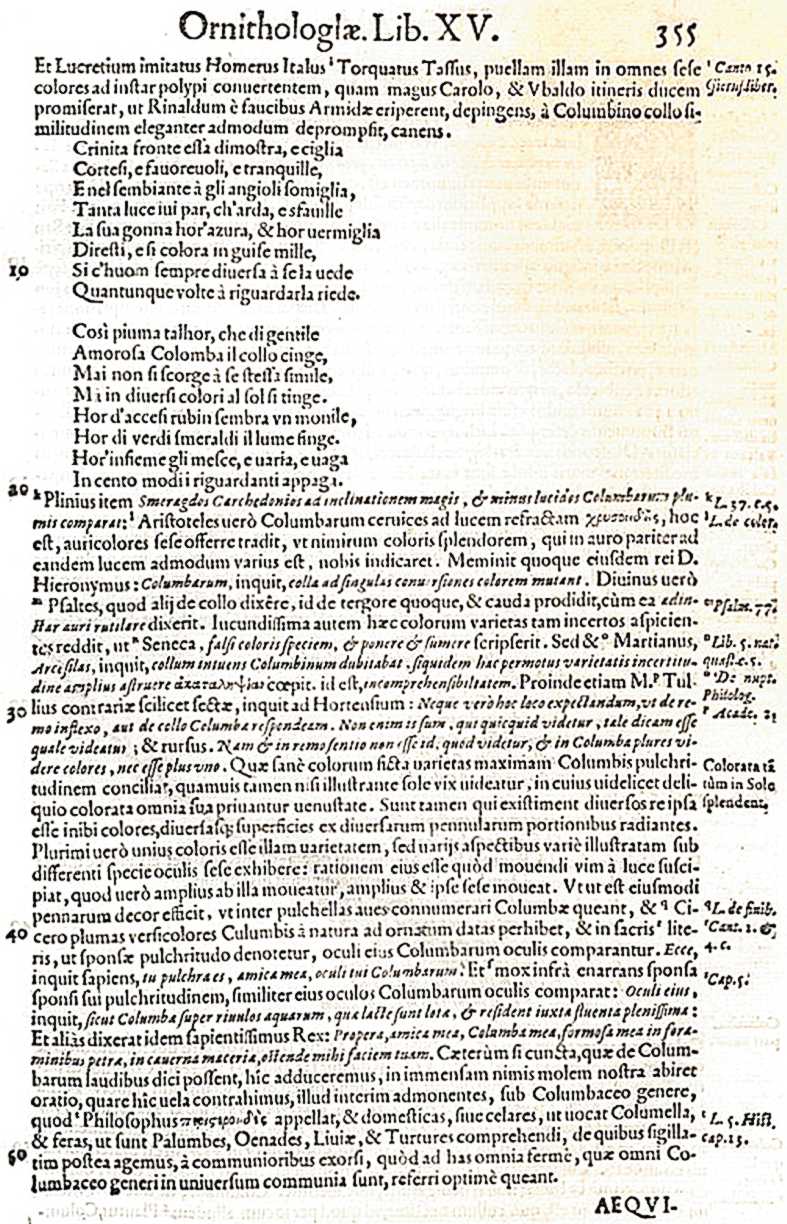 Ornithologiæ. Lib. XV. 355
Et Lucretium imitatus Homerus Italus ¹ Torquatus Tassus, puellam illam in omnes sese ¹ Canto 15.
colores ad instar polypi conuertentem, quam magus Carolo, & Vbaldo itineris ducem Gierus. liber.
promiserat, ut Rinaldum è faucibus Armidæ eriperent, depingens, à Columbino collo si-
militudinem eleganter admodum deprompsit, canens.
Crinita fronte essa dimostra, e ciglia
Cortesi, e fauoreuoli, e tranquille,
E nel sembiante à gli angioli somiglia,
Tanta luce iui par, ch'arda, e sfauille
La sua gonna hor'azura, & hor uermiglia
Diresti, e si colora in guise mille,
10 Si c'huom sempre diuersa à se la uede
Quantunque volte à riguardarla riede.
Così piuma talhor, che di gentile
Amorosa Colomba il collo cinge,
Mai non si scorge à se stessa simile,
Ma in diuersi colori al sol si tinge.
Hor d'accesi rubin sembra vn monile,
Hor di verdi smeraldi il lume finge.
Hor'insieme gli mesce, e uaria, e uaga
In cento modi i riguardanti appaga.
20 ᵏ Plinius item Smeragdos Carchedonios ad inclinationem magis, & minus lucidos Columbarum plu- ᵏ L. 37. c. 5.
mis comparat: ˡ Aristoteles uerò Columbarum ceruices ad lucem refractam χρυσοειδεῖς, hoc ˡ L. de color.
est, auricolores sese offerre tradit, vt nimirum coloris splendorem, qui in auro pariter ad
eandem lucem admodum varius est, nobis indicaret. Meminit quoque eiusdem rei D.
Hieronymus: Columbarum, inquit, colla ad singulas conuersiones colorem mutant. Diuinus uerò
ᵐ Psaltes, quod alij de collo dixêre, id de tergore quoque, & cauda prodidit, cùm ea ad in- ᵐ Psalm. 77.
star auri rutilare dixerit. Iucundissima autem hæc colorum varietas tam incertos aspicien-
tes reddit, ut ⁿ Seneca, falsi coloris speciem, & ponere & sumere scripserit. Sed & ᵒ Martianus, ⁿ Lib. 5. nat.
Arcesilas, inquit, collum intuens Columbinum dubitabat. siquidem hac permotus varietatis incertitu- quæst. c. 5.
dine amplius astruere ἀκαταληψίαν cœpit. id est, incomprehensibilitatem. Proinde etiam M. ᵖ Tul- ᵒ De nupt.
lius contrariæ scilicet sectæ, inquit ad Hortensium: Neque verò hoc loco expectandum, vt de re- Philolog.
30 mo inflexo, aut de collo Columbæ respondeam. Non enim is sum, qui quicquid videtur, tale dicam esse ᵖ Acade.
quale videatur; & rursus. Nam & in remo sentio non esse id, quod videtur, & in Columba plures vi-
dere colores, nec esse plus vno. Quæ sanè colorum ficta uarietas maximam Columbis pulchri- Colorata tã
tudinem conciliat, quamuis tamen nisi illustrante sole vix uideatur, in cuius uidelicet deli- tùm in Sole
quio colorata omnia sua priuantur uenustate. Sunt tamen qui existiment diuersos re ipsa splendent.
esse inibi colores, diuersasq; superficies ex diuersarum pennularum portionibus radiantes.
Plurimi uerò unius coloris esse illam uarietatem, sed uarijs aspectibus variè illustratam sub
differenti specie oculis sese exhibere: rationem eius esse quòd mouendi vim à luce susci-
piat, quod uerò amplius ab illa moueatur, amplius & ipse sese moueat. Vt ut est eiusmodi
pennarum decor efficit, vt inter pulchellas aues connumerari Columbæ queant, & ᑫ Ci- ᑫ L. de finib.
40 cero plumas versicolores Culumbis à natura ad ornatum datas perhibet, & in sacris ʳ lite- ʳ Cant. 1. &
ris, ut sponsæ pulchritudo denotetur, oculi eius Columbarum oculis comparantur. Ecce, 4. c.
inquit sapiens, tu pulchra es, amica mea, oculi tui Columbarum: Et ˢ mox infrà enarrans sponsa ˢ Cap. 5.
sponsi sui pulchritudinem, similiter eius oculos Columbarum oculis comparat: Oculi eius,
inquit, sicut Columbæ super riuulos aquarum, quæ lacte sunt lotæ, & resident iuxta fluenta plenissima:
Et aliàs dixerat idem sapientissimus Rex: Propera, amica mea, Columba mea, formosa mea in fora-
minibus petræ, in cauerna maceriæ, ostende mihi faciem tuam. Cæterùm si cuncta, quæ de Colum-
barum laudibus dici possent, hic adduceremus, in immensam nimis molem nostra abiret
oratio, quare hic uela contrahimus, illud interim admonentes, sub Columbaceo genere,
quod ᵗ Philosophus περιστεροειδὲς appellat, & domesticas, siue celares, ut uocat Columella, ᵗ L. 5. Hist.
& feras, ut sunt Palumbes, Oenades, Liuiæ, & Turtures comprehendi, de quibus sigilla- cap. 13.
50 tim postea agemus, à communioribus exorsi, quòd ad has omnia fermè, quæ omni Co-
lumbaceo generi in uniuersum communia sunt, referri optimè queant.
AEQVI-